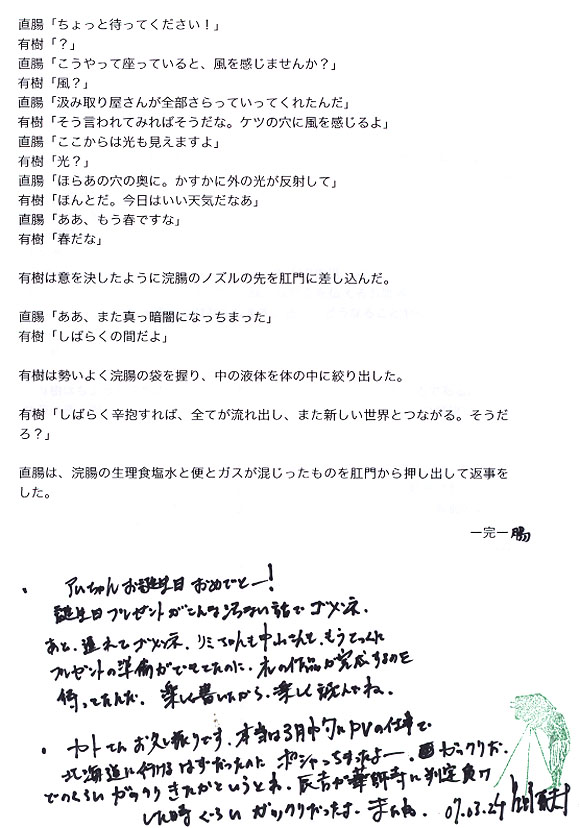 直腸「ちょっと待ってください！」
有樹「？」
直腸「こうやって座っていると、風を感じませんか？」
有樹「風？」
直腸「汲み取り屋さんが全部さらっていってくれたんだ」
有樹「そう言われてみればそうだな。ケツの穴に風を感じるよ」
直腸「ここからは光も見えますよ」
有樹「光？」
直腸「ほらあの穴の奥に。かすかに外の光が反射して」
有樹「ほんとだ。今日はいい天気だなあ」
直腸「ああ、もう春ですな」
有樹「春だな」
有樹は意を決したように浣腸のノズルの先を肛門に差し込んだ。
直腸「ああ、また真っ暗闇になっちまった」
有樹「しばらくの間だよ」
有樹は勢いよく浣腸の袋を握り、中の液体を体の中に絞り出した。
有樹「しばらく辛抱すれば、全てが流れ出し、また新しい世界とつながる。そうだ
ろ？」
直腸は、浣腸の生理食塩水と便とガスが混じったものを肛門から押し出して返事を
した。
ー完ー腸
・ アいちゃんお誕生日 おめでとー！
誕生日プレゼントがこんな 話でゴメンネ．
あと、遅れてゴメンネ．リミちゃんも中山さんも、もうとっくに
プレゼントの準備ができてたのに、私の作品が完成するのを
待ってたんだ． 楽しく書いたから、楽しく読んでね．
・ カトさん お久し振りです．本当は3月中旬にPVの仕事で
北海道に行けるはずだったのに ポシャっちまったよー． ガックリだ．
どのくらい ガックリきたかというとね、辰吉が薬師寺に判定負け
した時くらい ガックリだったよ．またね． 07.03.24